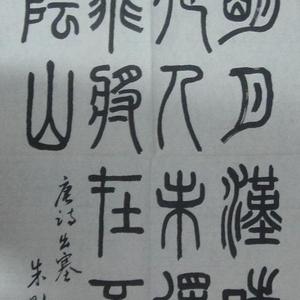 明月漢時
人未還
飛將在不
陰山
唐詩出塞
朱